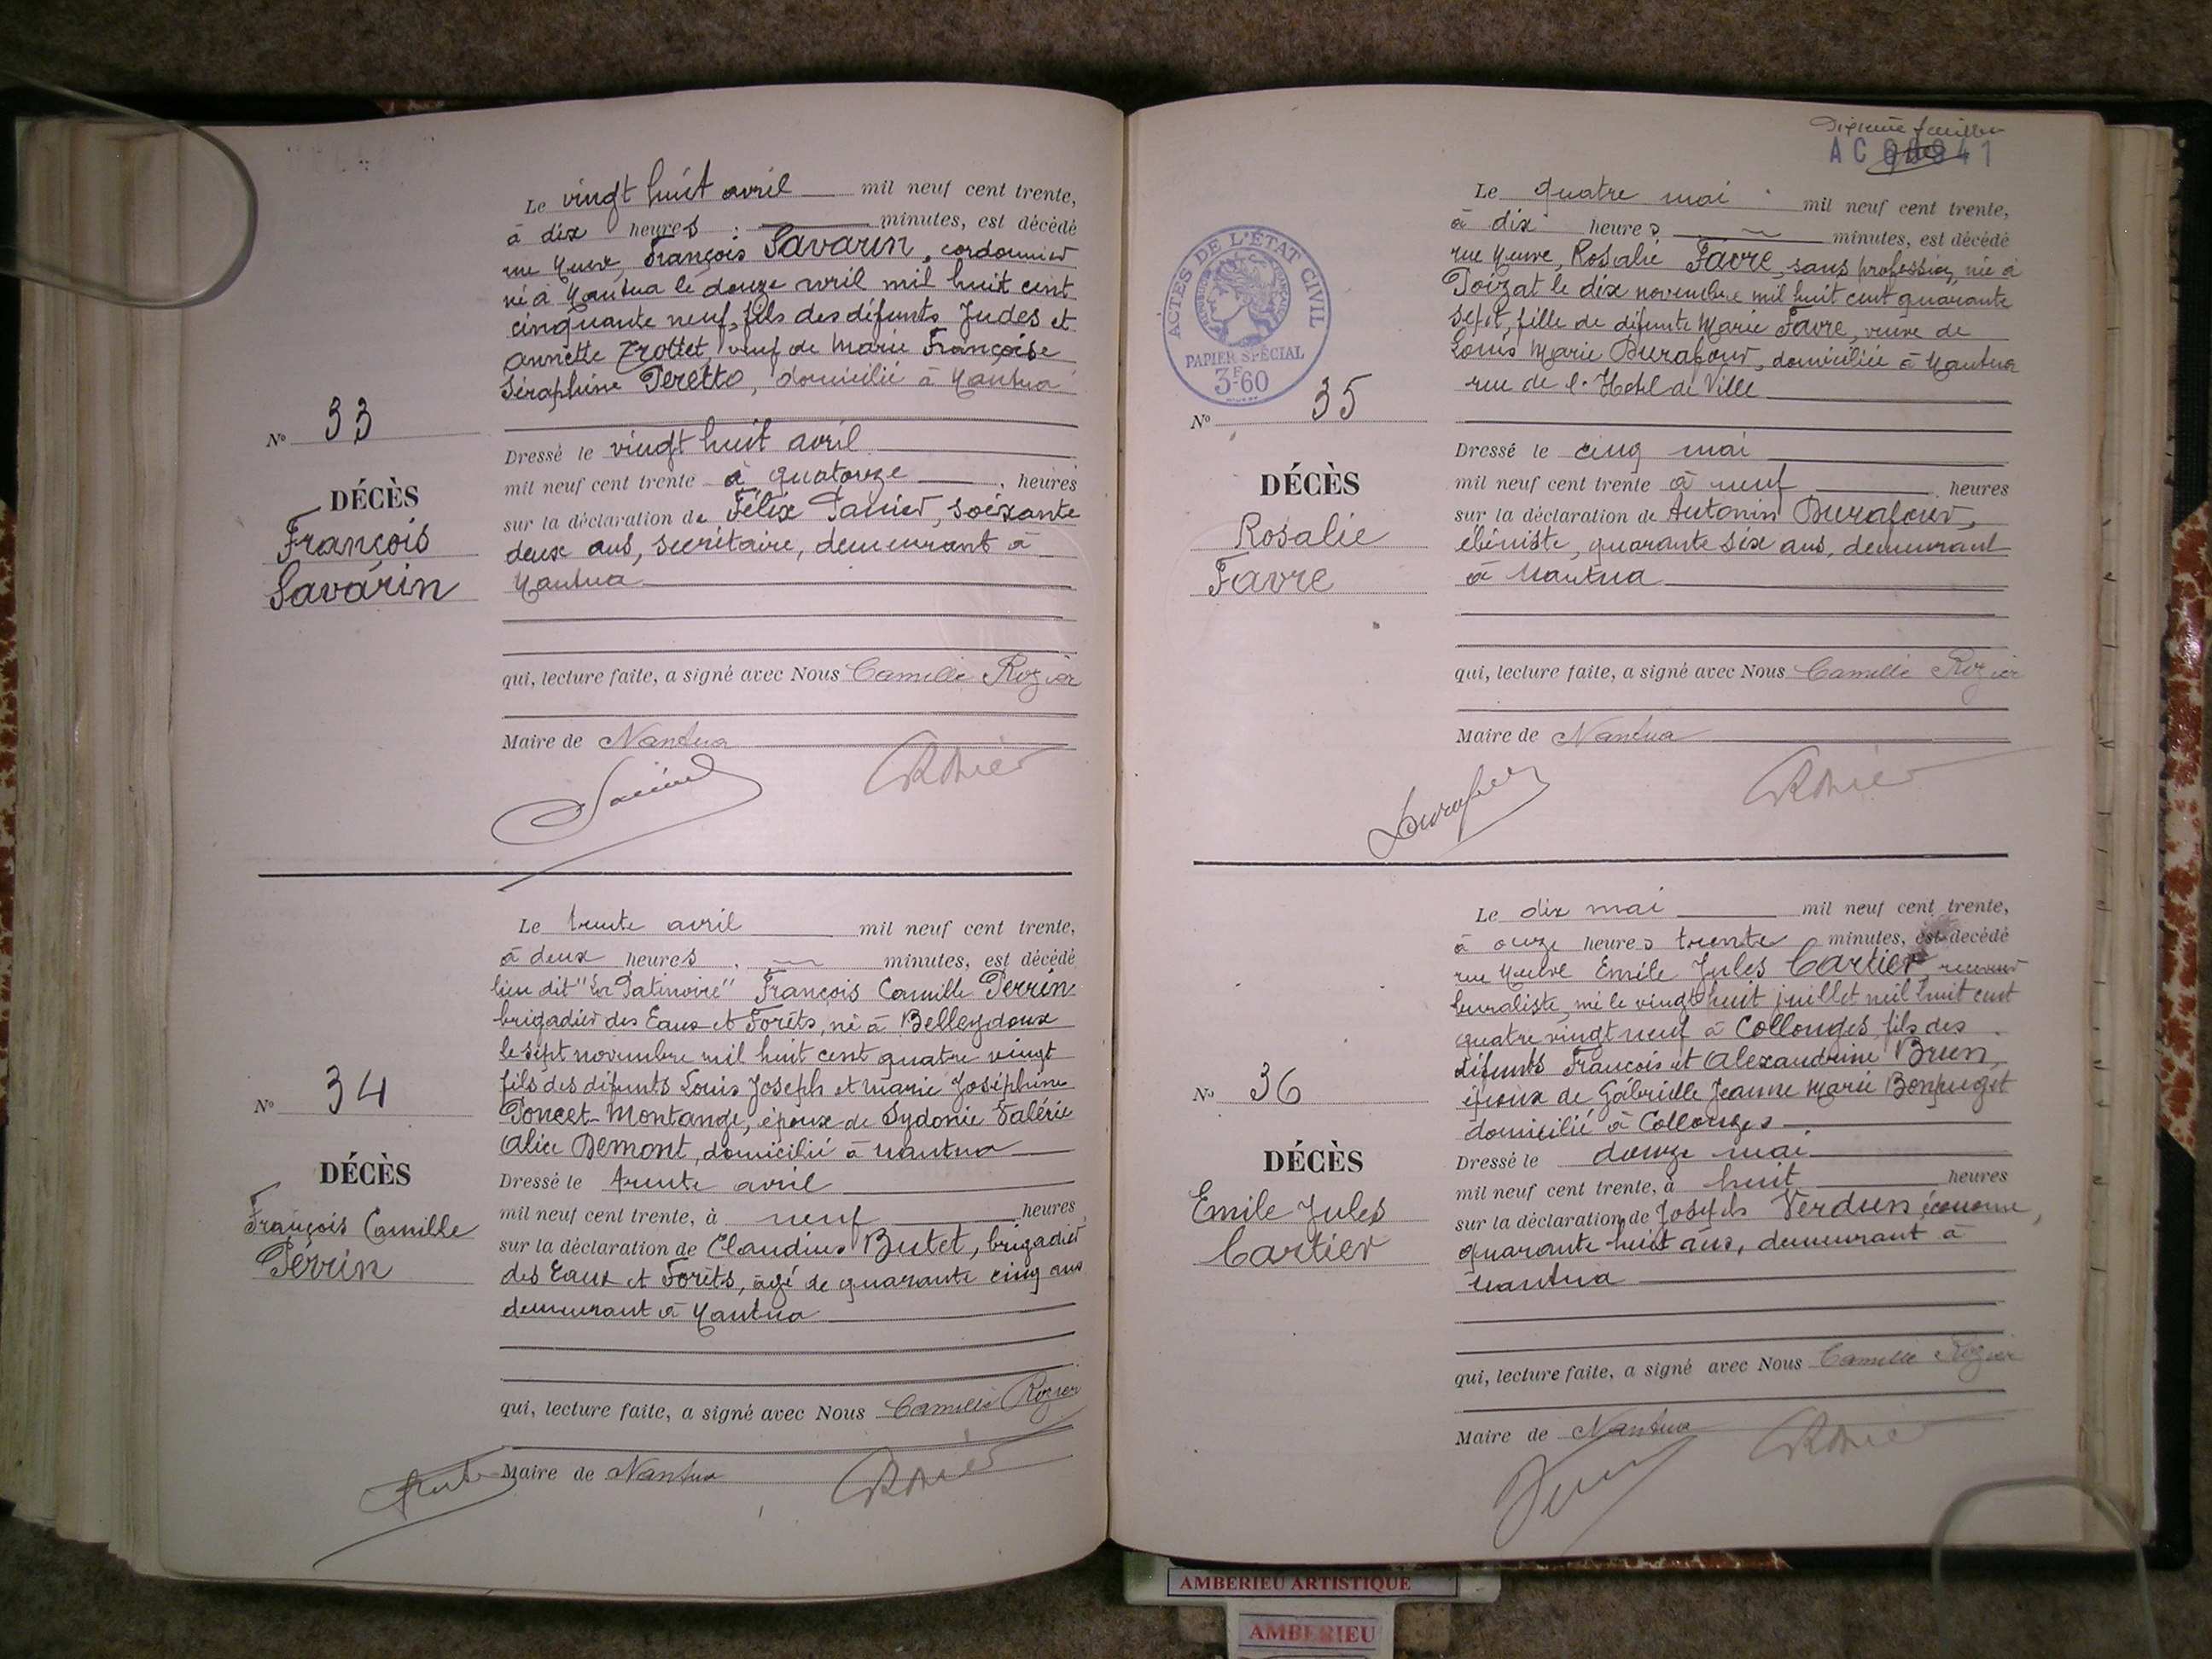 Le vingt huit avril mil neuf cent trente,
à dix heures minutes, est décédé
rue Neuve, François Savarin, cordonnier
né à Nantua le douze avril mil huit cent
cinquante neuf, fils des défunts Judes et
Annette Trottet, veuf de Marie Françoise
Séraphine Peretto, domicilié à Nantua
No 33
DÉCÈS
François
Savarin
Dressé le vingt huit avril
mil neuf cent trente à quatorze, heures
sur la déclaration de Félix Janier, soixante
deux ans, secrétaire, demeurant à
Nantua
qui, lecture faite, a signé avec Nous Camille Rozier
Maire de Nantua
Le trente avril mil neuf cent trente,
à deux heures, minutes, est décédé
lieu dit "La Patinoire" François Camille Perrin
brigadier des Eaux et Forêts, né à Belleydoux
le sept novembre mil huit cent quatre vingt
fils des défunts Louis Joseph et Marie Joséphine
Poncet-Montange, époux de Sydonie Valérie
Alice Demont, domicilié à Nantua
No 34
DÉCÈS
François Camille
Perrin
Dressé le trente avril
mil neuf cent trente, à neuf heures
sur la déclaration de Claudius Butet, brigadier
des Eaux et Forêts, âgé de quarante cinq ans
demeurant à Nantua
qui, lecture faite, a signé avec Nous Camille Rozier
Maire de Nantua
Dixième feuillet
AC
ACTES DE L'ÉTAT CIVIL
RÉPUBLIQUE FRANÇAISE
PAPIER SPÉCIAL
3F-60
Le quatre mai mil neuf cent trente,
à dix heures minutes, est décédé
rue Neuve, Rosalie Favre, sans profession, née à
Poizat le dix novembre mil huit cent quarante
sept, fille de défunte Marie Favre, veuve de
Louis Marie Durafour, domiciliée à Nantua
rue de l'Hotel de Ville
No 35
DÉCÈS
Rosalie
Favre
Dressé le cinq mai
mil neuf cent trente à neuf heures
sur la déclaration de Antonin Durafour,
ébéniste, quarante six ans, demeurant
à Nantua
qui, lecture faite, a signé avec Nous Camille Rozier
Maire de Nantua
Durafour
Le dix mai mil neuf cent trente,
à onze heures trente minutes, est décédé
rue Neuve Emile Jules Cartier, receveur
buraliste, né le vingt huit juillet mil huit cent
quatre vingt neuf à Collonges, fils des
défunts François et Alexandrine Brun,
époux de Gabrielle Jeanne Marie Bonpuget
domicilié à Collonges
No 36
DÉCÈS
Emile Jules
Cartier
Dressé le douze mai
mil neuf cent trente, à huit heures
sur la déclaration de Joseph Verdun, économe,
quarante huit ans, demeurant à
Nantua
qui, lecture faite, a signé avec Nous Camille Rozier
Maire de Nantua
AMBERIEU ARTISTIQUE
AMBERIEU